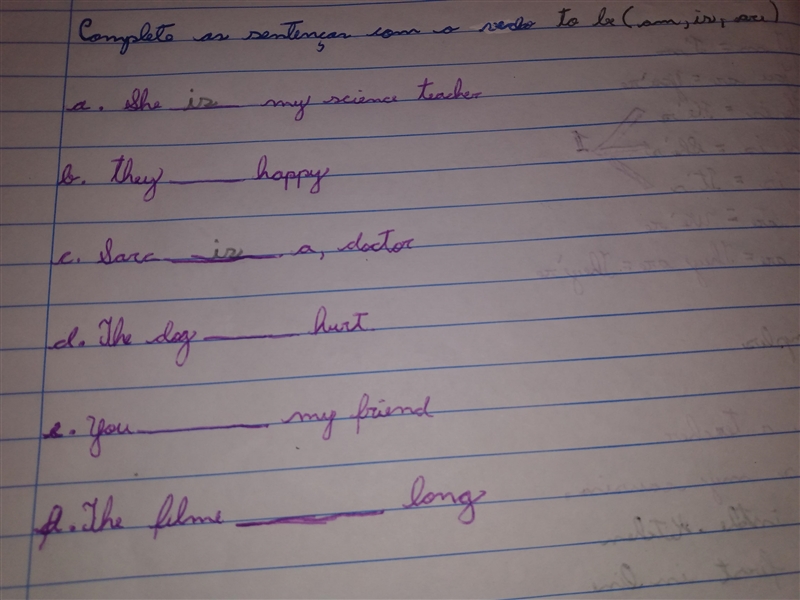 Complete as sentenças com o verbo to be (am, is, are)
a. She is my science teacher
b. they ____ happy
c. Sara is a, doctor
d. The dog ____ hurt
e. You ____ my friend
f. The filme ____ long